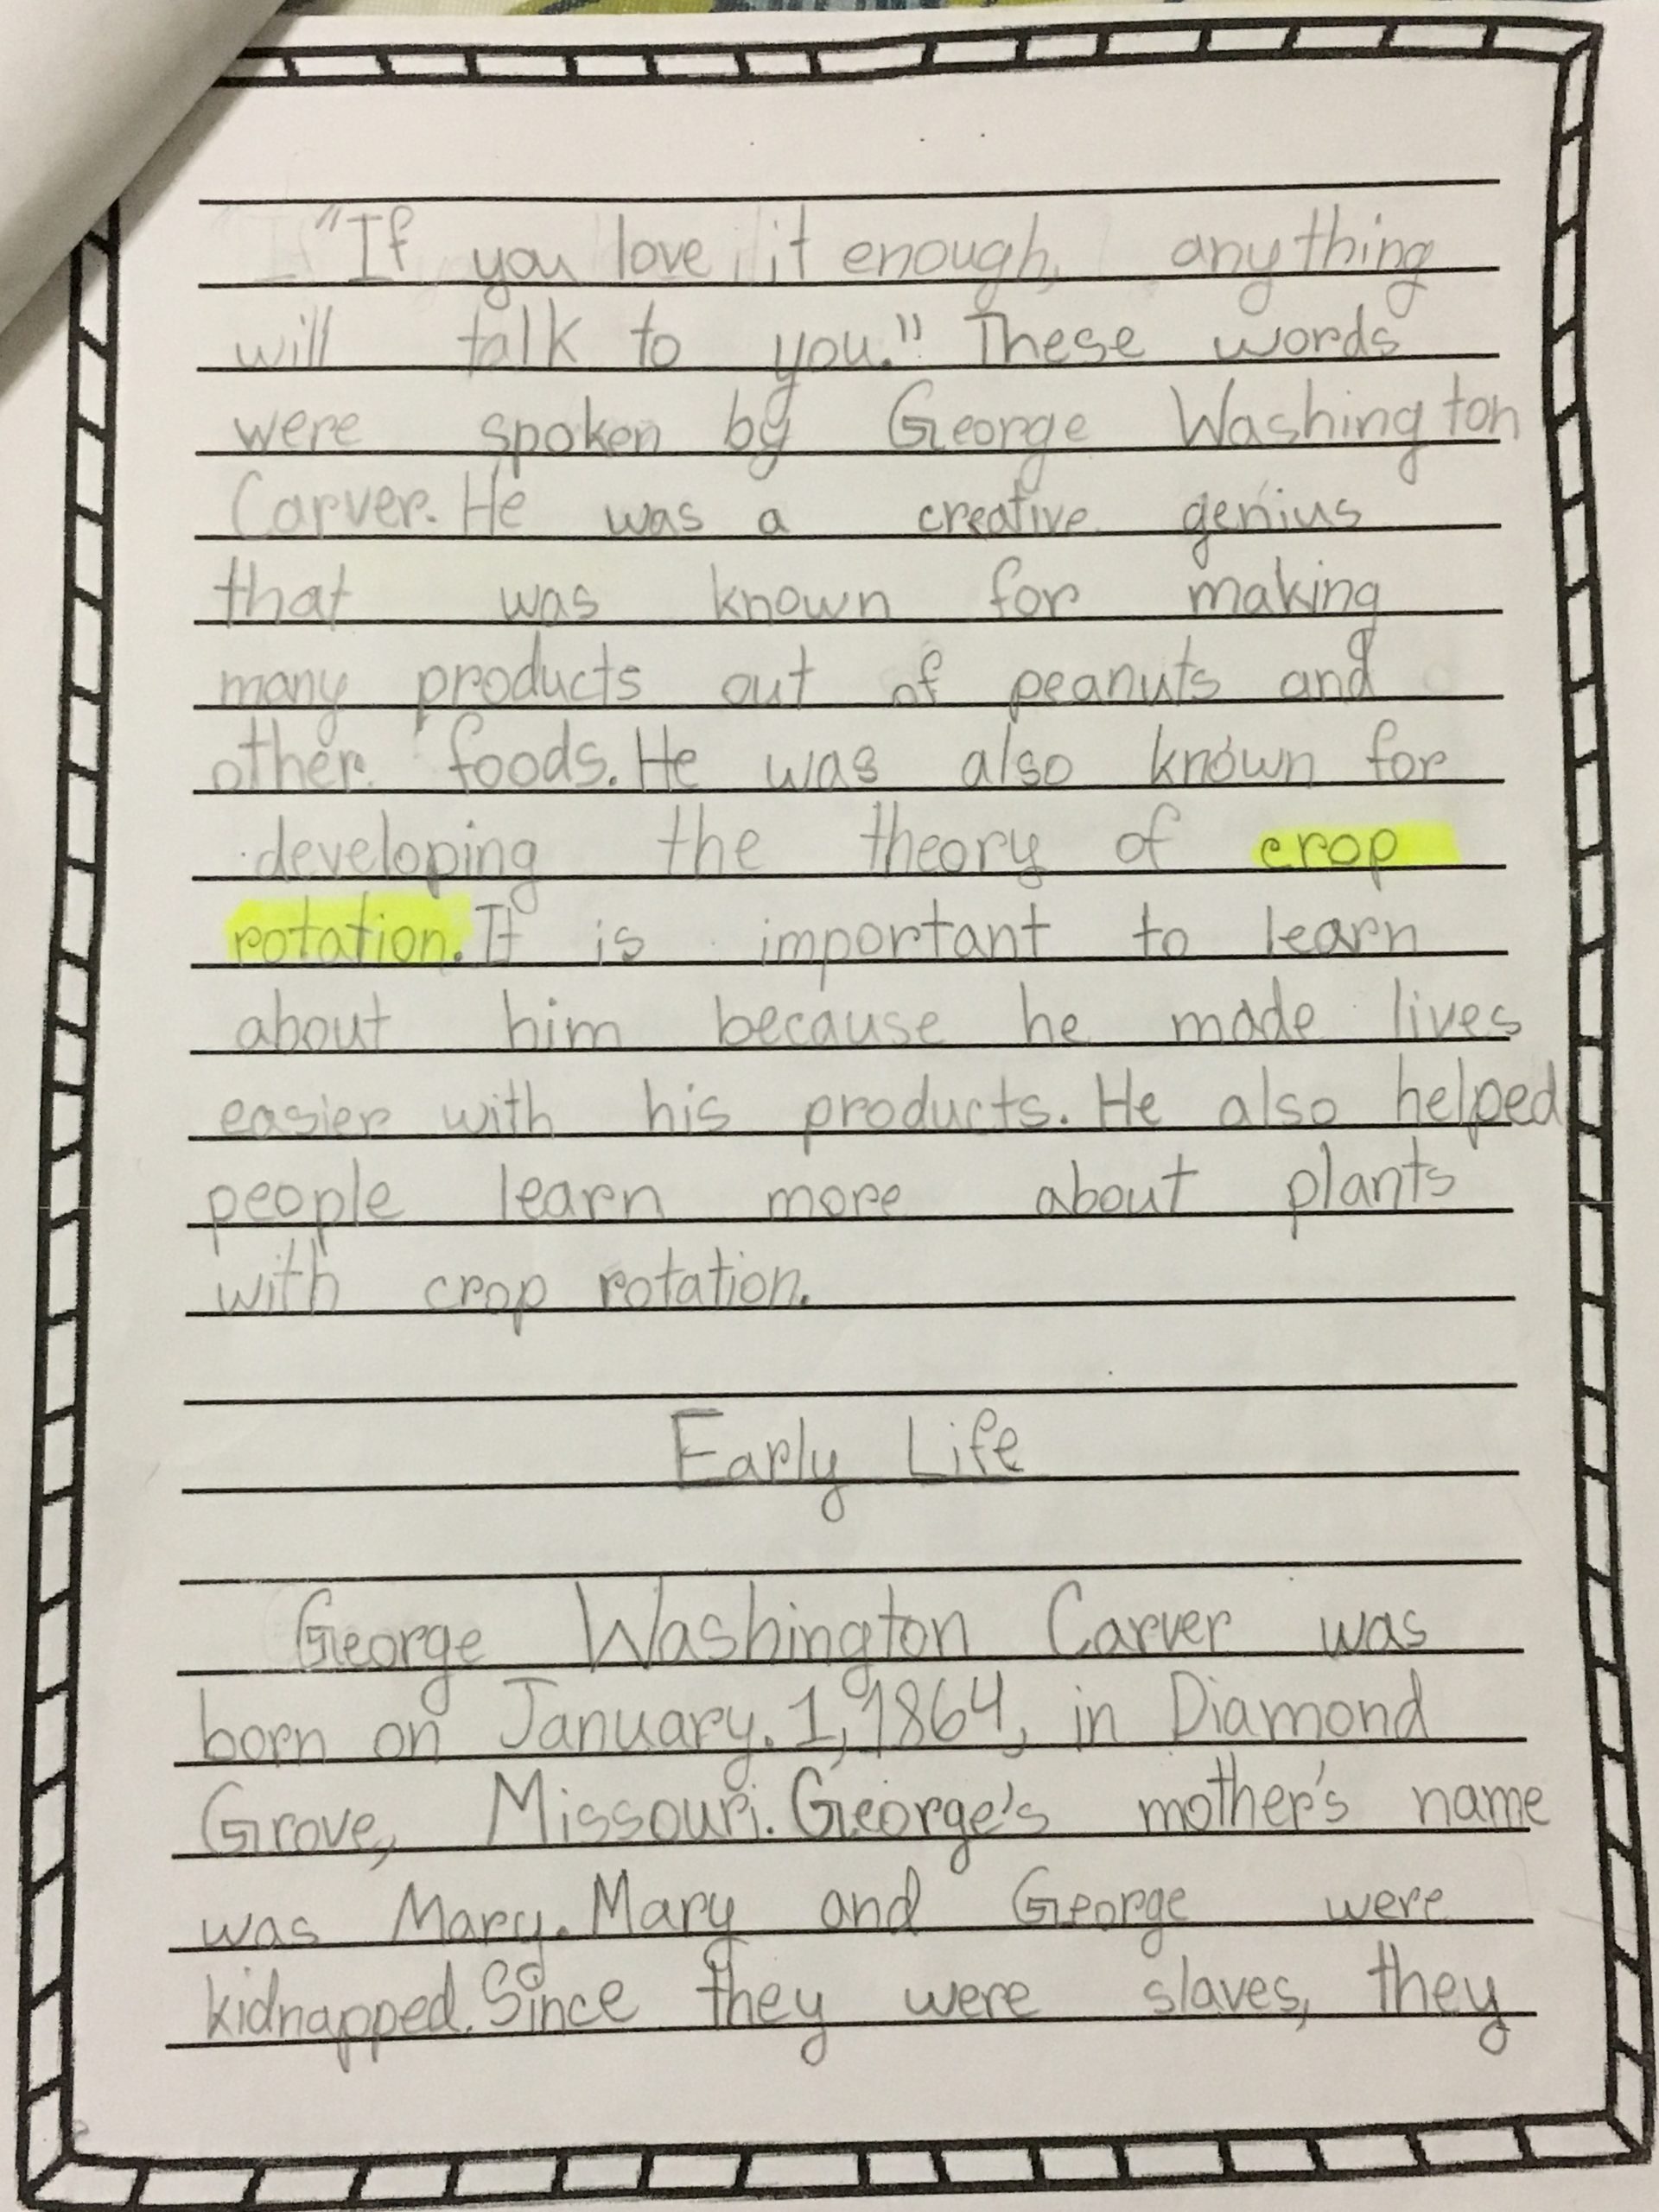 "If you love it enough, anything
will talk to you." These words
were spoken by George Washington
Carver. He was a creative genius
that was known for making
many products out of peanuts and
other foods. He was also known for
developing the theory of crop
rotation. It is important to learn
about him because he made lives
easier with his products. He also helped
people learn more about plants
with crop rotation.
Early Life
George Washington Carver was
born on January. 1, 1864, in Diamond
Grove, Missouri. George's mother's name
was Mary. Mary and George were
kidnapped. Since they were slaves, they